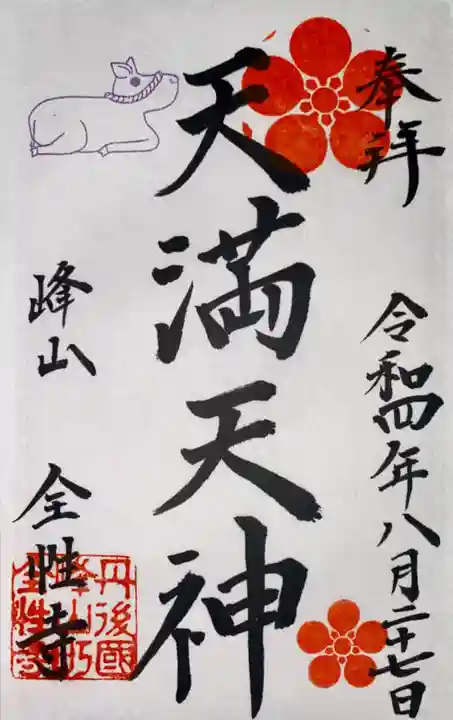 奉拝
令和四年八月二十七日
天満天神
峰山 全性寺
丹後國
峰山町
全性寺